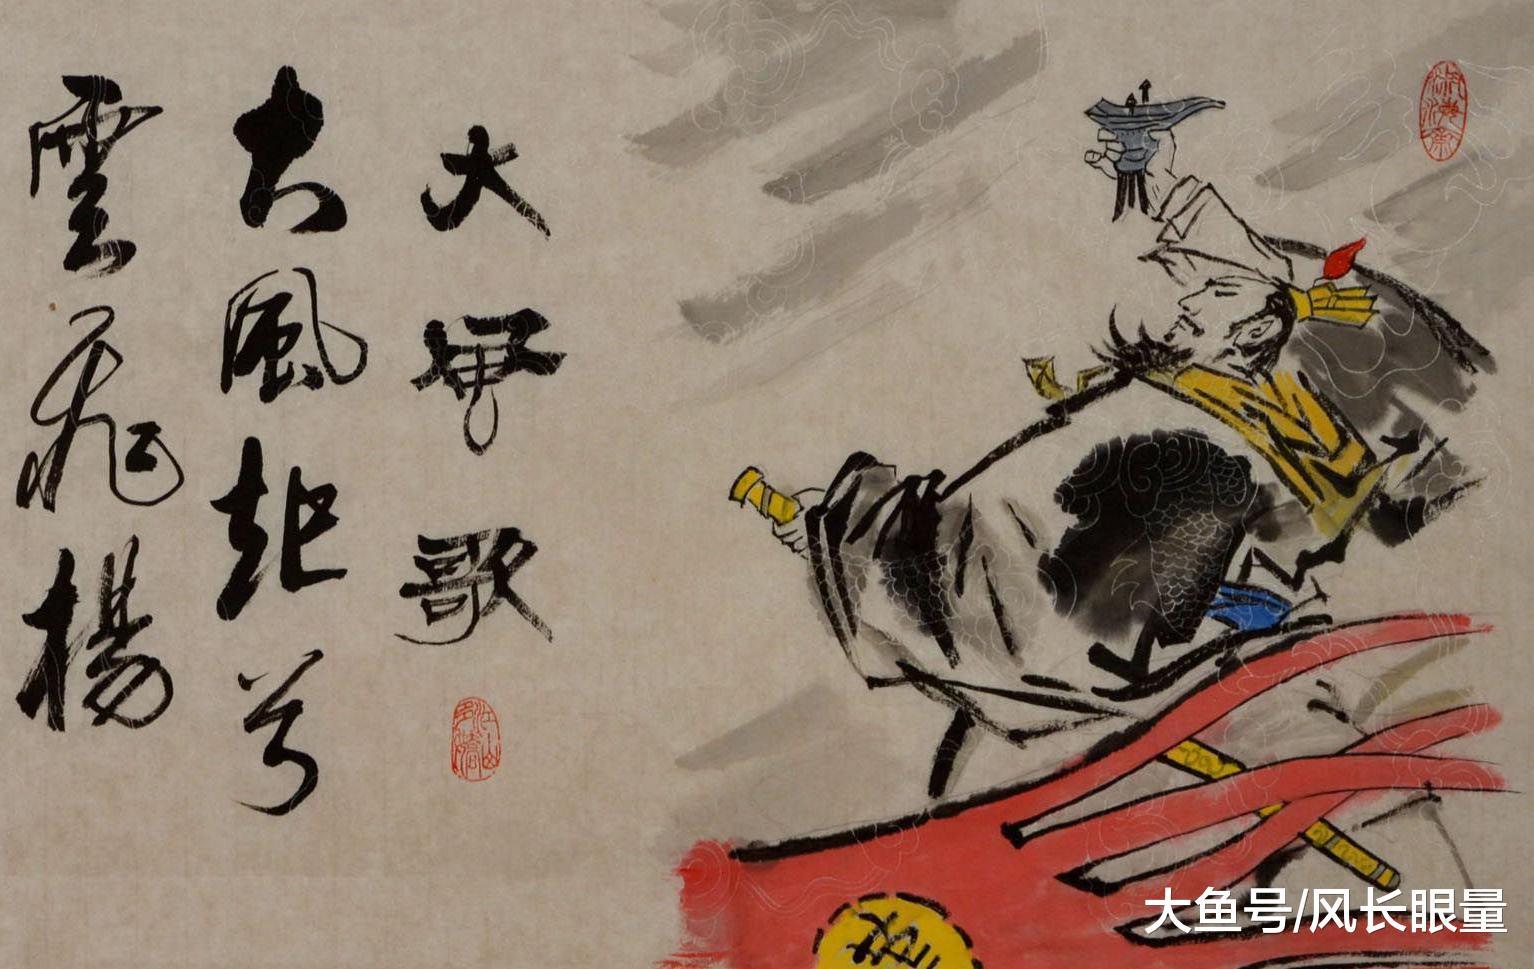 大風歌
大風起兮
雲飛揚
大鱼号/风长眼量